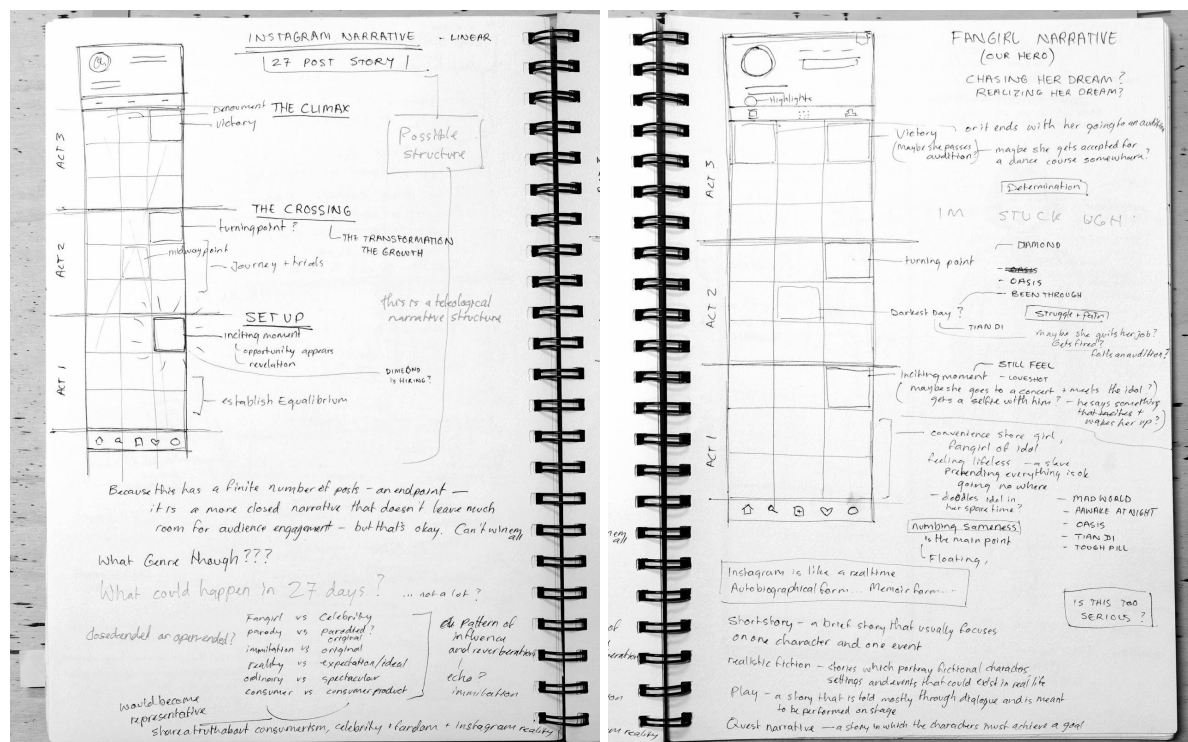 INSTAGRAM NARRATIVE - LINEAR
27 POST STORY
Denoument
Victory
THE CLIMAX
ACT 3
Possible
Structure
THE CROSSING
turning point ?
THE TRANSFORMATION
THE GROWTH
midway point
Journey + trials
ACT 2
this is a teleological
narrative structure
SET UP
inciting moment
opportunity appears
revelation
DIMEOND
IS HIRING?
ACT 1
establish Equilibrium
Because this has a finite number of posts - an endpoint -
it is a more closed narrative that doesn't leave much
room for audience engagement - but that's okay. Can't win em
all
What Genre though???
What could happen in 27 days ? ... not a lot ?
closed ended or open ended?
Fangirl vs Celebrity
parody vs parodied ?
original
immitation vs original
reality vs expectation/ideal
ordinary vs spectacular
consumer vs consumer product
Pattern of
influence
and reverberation
echo ?
immitation
would become
representative
share a truth about consumerism, celebrity + fandom + instagram reality
FANGIRL NARRATIVE
(OUR HERO)
CHASING HER DREAM?
REALIZING HER DREAM?
Highlights
Victory
(maybe she passes
audition)
or it ends with her going to an audition
maybe she gets accepted for
a dance course somewhere?
ACT 3
Determination
IM STUCK UGH
DIAMOND
turning point
OASIS
- OASIS
- BEEN THROUGH
Darkest Day ?
TIAN DI
Struggle + pain
maybe she quits her job?
Gets fired?
fails an audition?
ACT 2
STILL FEEL
- LOVESHOT
inciting moment
(maybe she goes to a concert + meets the idol ?)
gets a selfie with him ? - he says something
that +
wakes her up?
ACT 1
convenience store girl,
fangirl of idol
feeling lifeless - a slave
pretending everything is ok
going no where
- doodles idol in
her spare time?
- MAD WORLD
- AWAKE AT NIGHT
- OASIS
- TIAN DI
- TOUGH PILL
numbing sameness
is the main point
Floating,
Instagram is like a realtime
Autobiographical form... Memoir form...
IS THIS TOO
SERIOUS ?
Short story - a brief story that usually focuses
on one character and one event
realistic fiction - stories which portray fictional characters,
settings and events that could exist in real life
Play - a story that is told mostly through dialogue and is meant
to be performed on stage
Quest narrative - a story in which the characters must achieve a goal